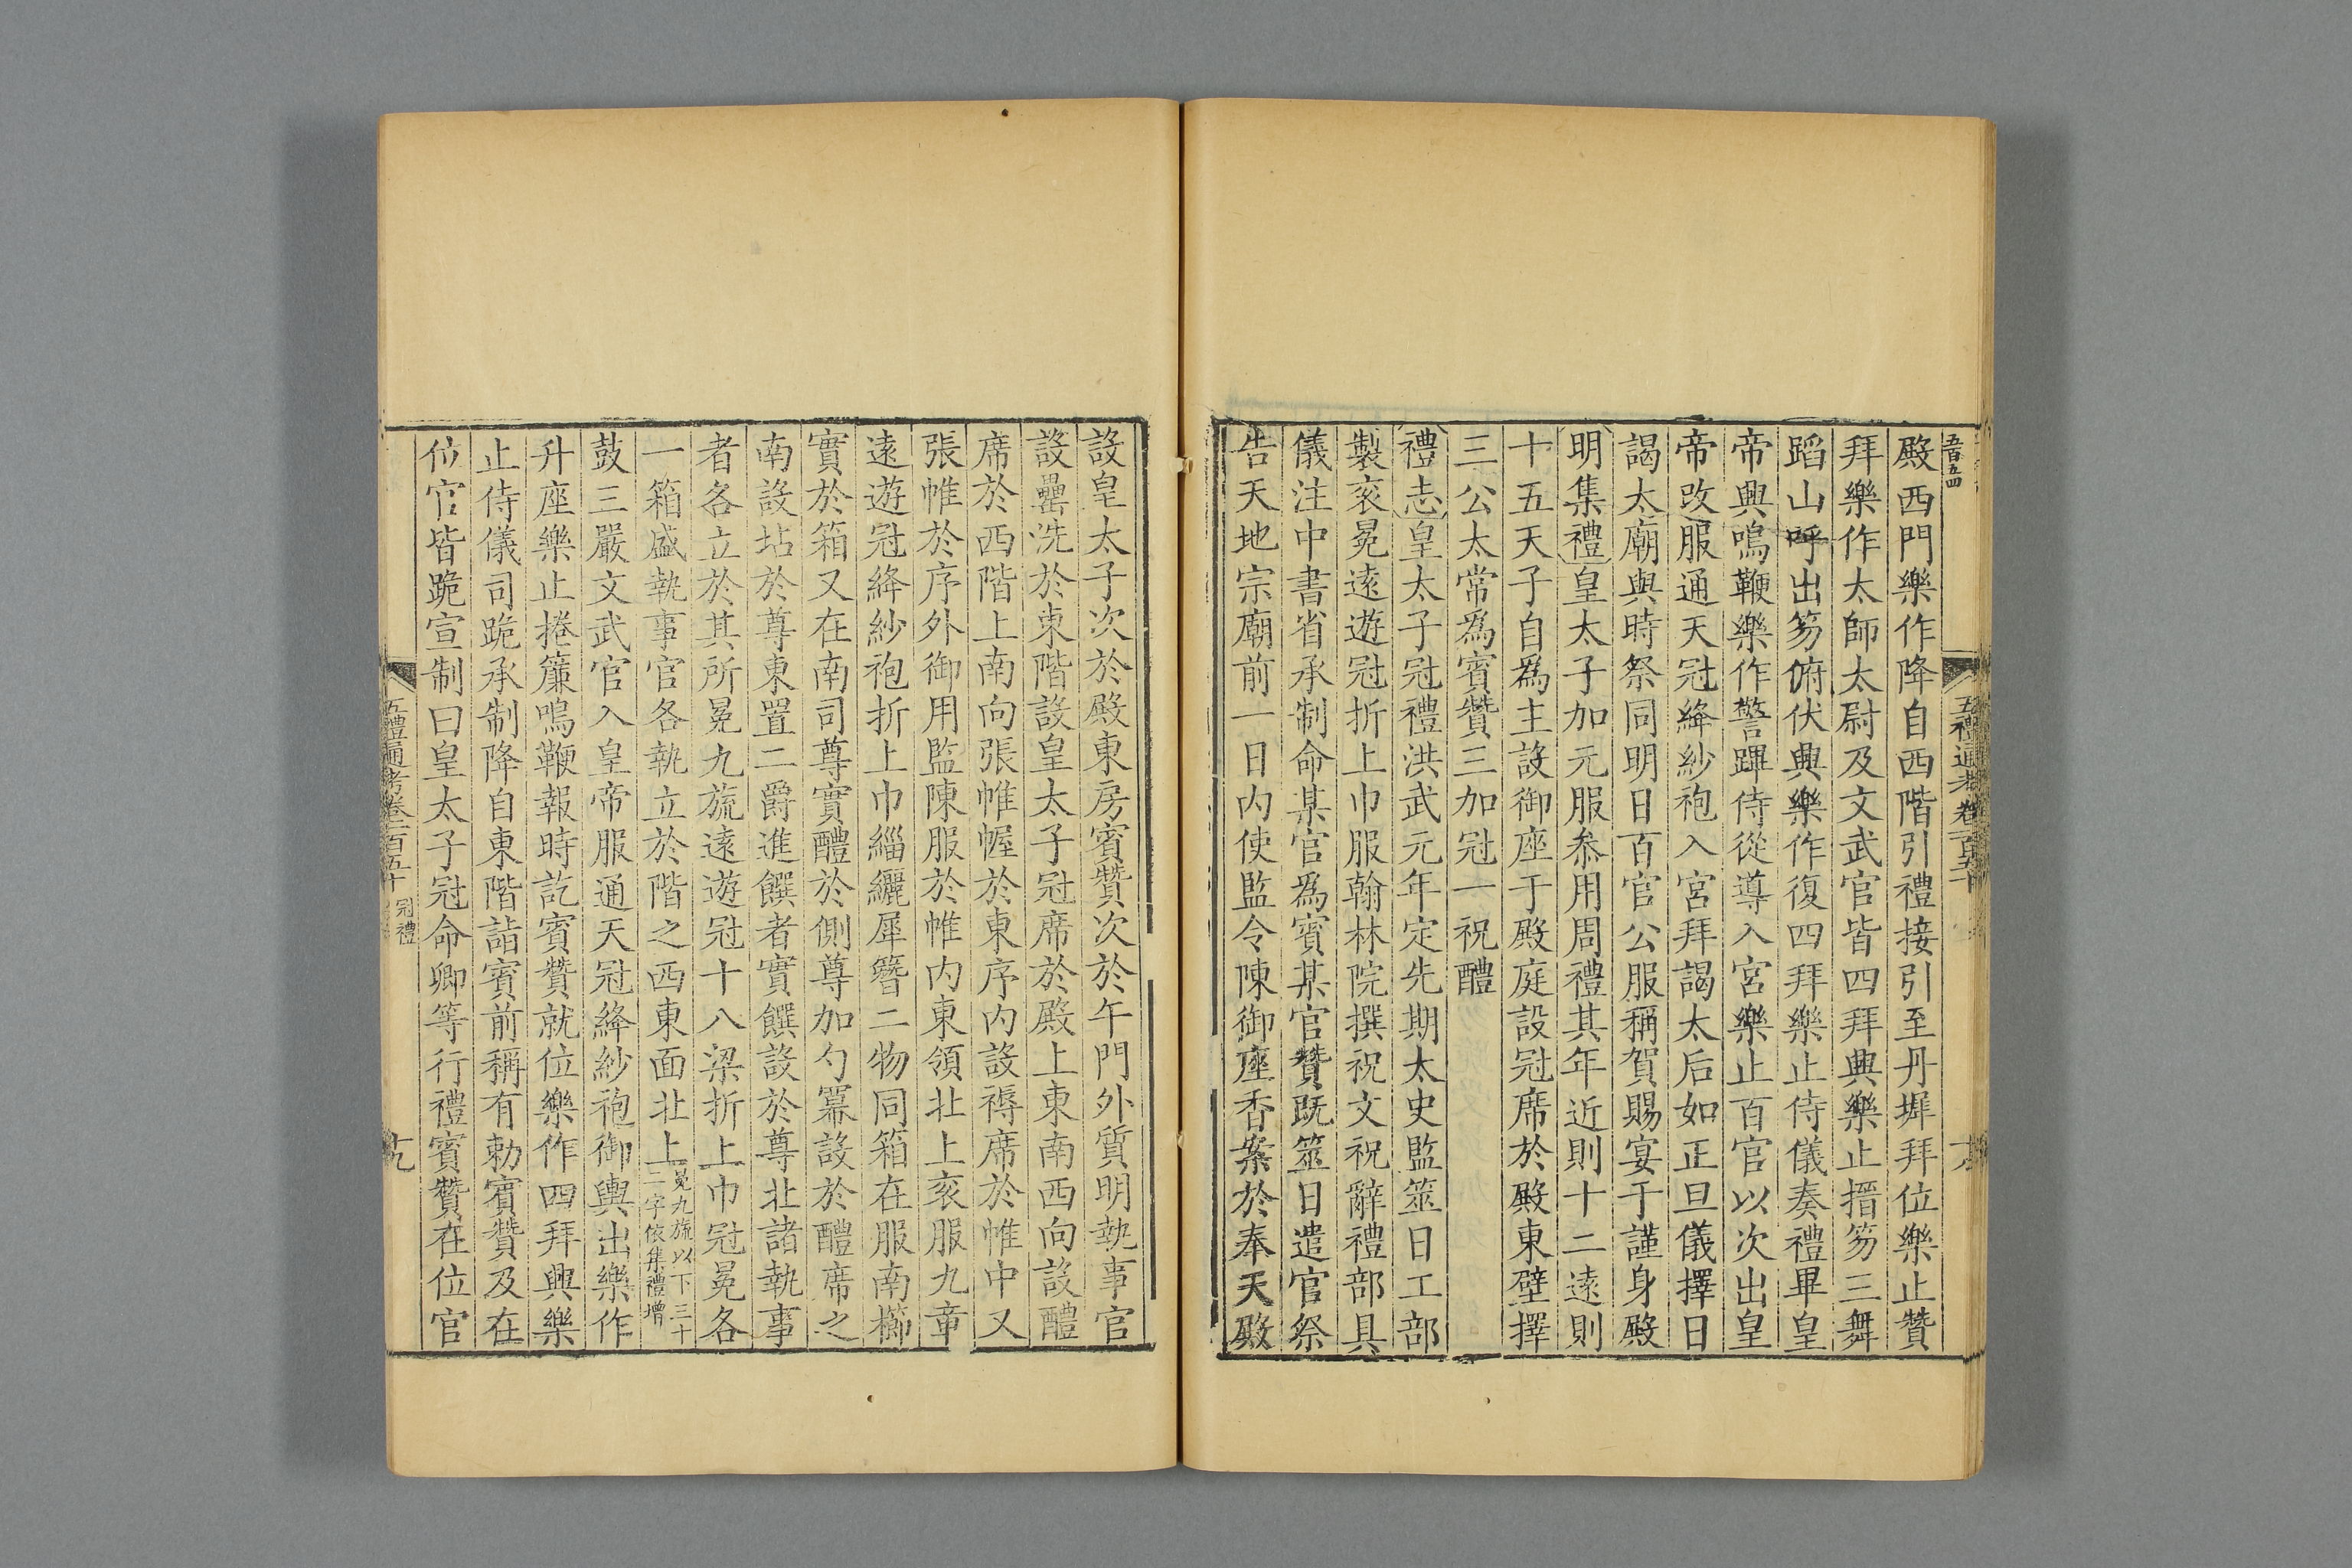 五百五四
五禮通考卷一百五十
殿西門樂作降自西階引禮接引至丹墀拜位樂止贊
拜樂作太師太尉及文武官皆四拜興樂止搢笏三舞
蹈山呼出笏俯伏興樂作復四拜樂止侍儀奏禮畢皇
帝興鳴鞭樂作警蹕侍從導入宮樂止百官以次出皇
帝改服通天冠絳紗袍入宮拜謁太后如正旦儀擇日
謁太廟與時祭同明日百官公服稱賀賜宴于謹身殿
明集禮皇太子加元服叅用周禮其年近則十二遠則
十五天子自爲主設御座于殿庭設冠席於殿東壁擇
三公太常爲賓贊三加冠一祝醴
禮志皇太子冠禮洪武元年定先期太史監筮日工部
製衮冕遠遊冠折上巾服翰林院撰祝文祝辭禮部具
儀注中書省承制命某官爲賓某官贊既筮日遣官祭
告天地宗廟前一日内使監令陳御座香案於奉天殿
設皇太子次於殿東房賓贊次於午門外質明執事官
設罍洗於東階設皇太子冠席於殿上東南西向設醴
席於西階上南向張帷幄於東序内設褥席於帷中又
張帷於序外御用監陳服於帷内東領北上衮服九章
遠遊冠絳紗袍折上巾緇纚犀簪二物同箱在服南櫛
實於箱又在南司尊實醴於側尊加勺冪設於醴席之
南設坫於尊東置二爵進饌者實饌設於尊北諸執事
者各立於其所冕九旒遠遊冠十八梁折上巾冠冕各
一箱盛執事官各執立於階之西東面北上冕九旒以下三十二字依集禮增
鼓三嚴文武官入皇帝服通天冠絳紗袍御輿出樂作
升座樂止捲簾鳴鞭報時訖賓贊就位樂作四拜興樂
止侍儀司跪承制降自東階詣賓前稱有勅賓贊及在
位官皆跪宣制曰皇太子冠命卿等行禮賓贊在位官
五禮通考卷一百五十 冠禮